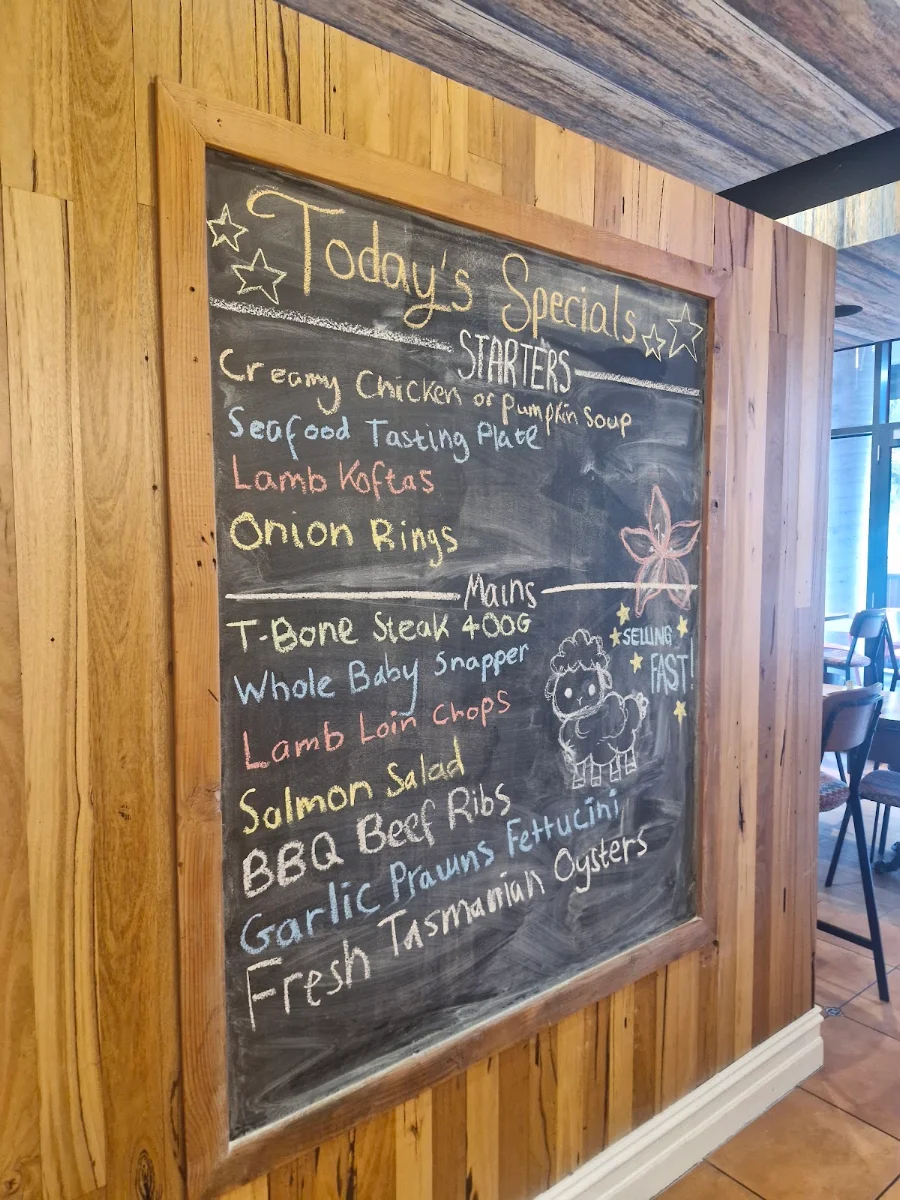 Today's Specials
STARTERS
Creamy Chicken or Pumpkin Soup
Seafood Tasting Plate
Lamb Koftas
Onion Rings
Mains
T-Bone Steak 400G
Whole Baby Snapper
Lamb Loin Chops
SELLING
FAST!
Salmon Salad
BBQ Beef Ribs
Garlic Prawns Fettucini
Fresh Tasmanian Oysters